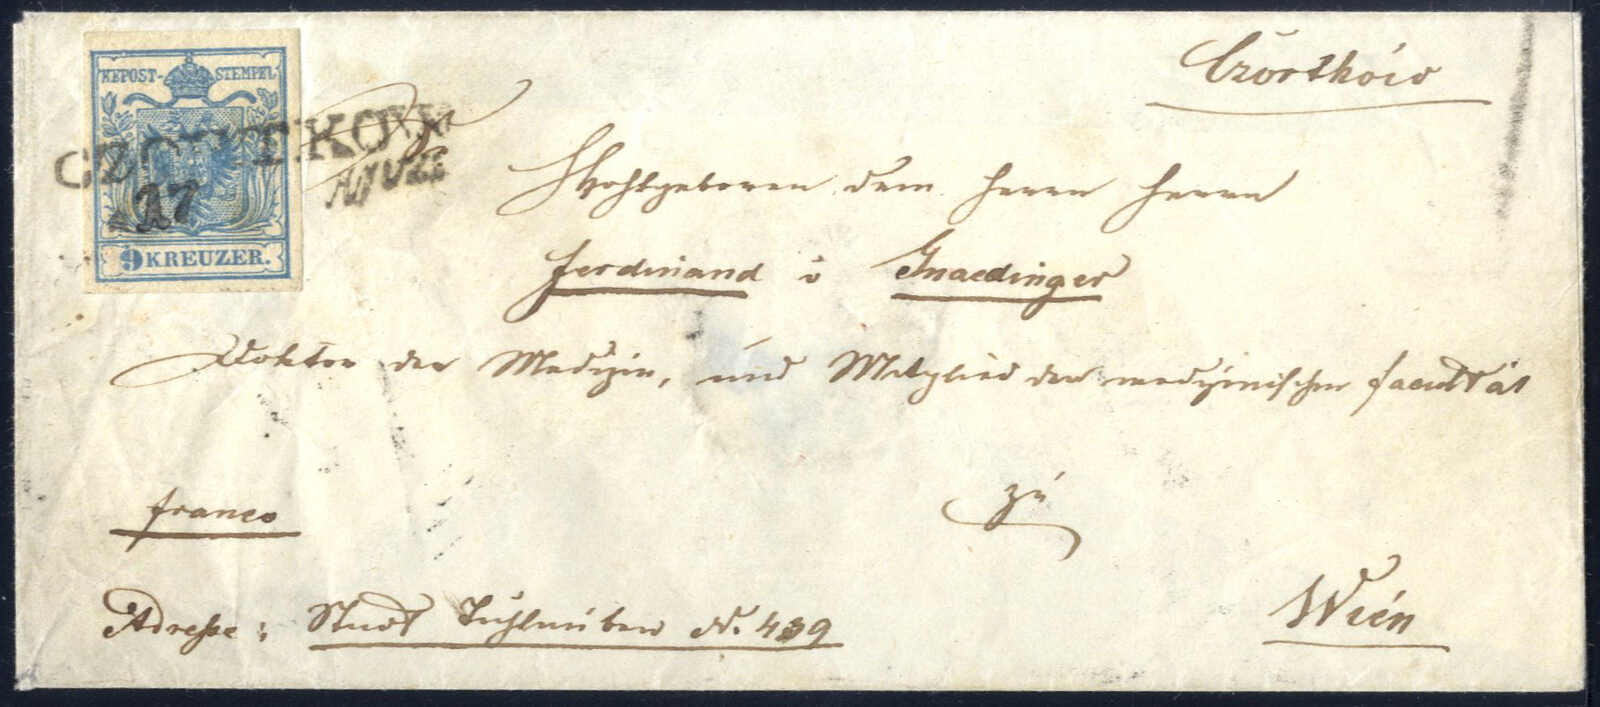 Czortków
KKPOST-STEMPEL
CZORTKOW
27
9 KREUZER.
Wohlgeboren dem Herrn Herrn
Ferdinand v Gnaedinger
Doktor der Medizin, und Mitglied der medizinischen Facultät
franco
zu
Wien
Adresse: Stadt Tuchlauben N. 439